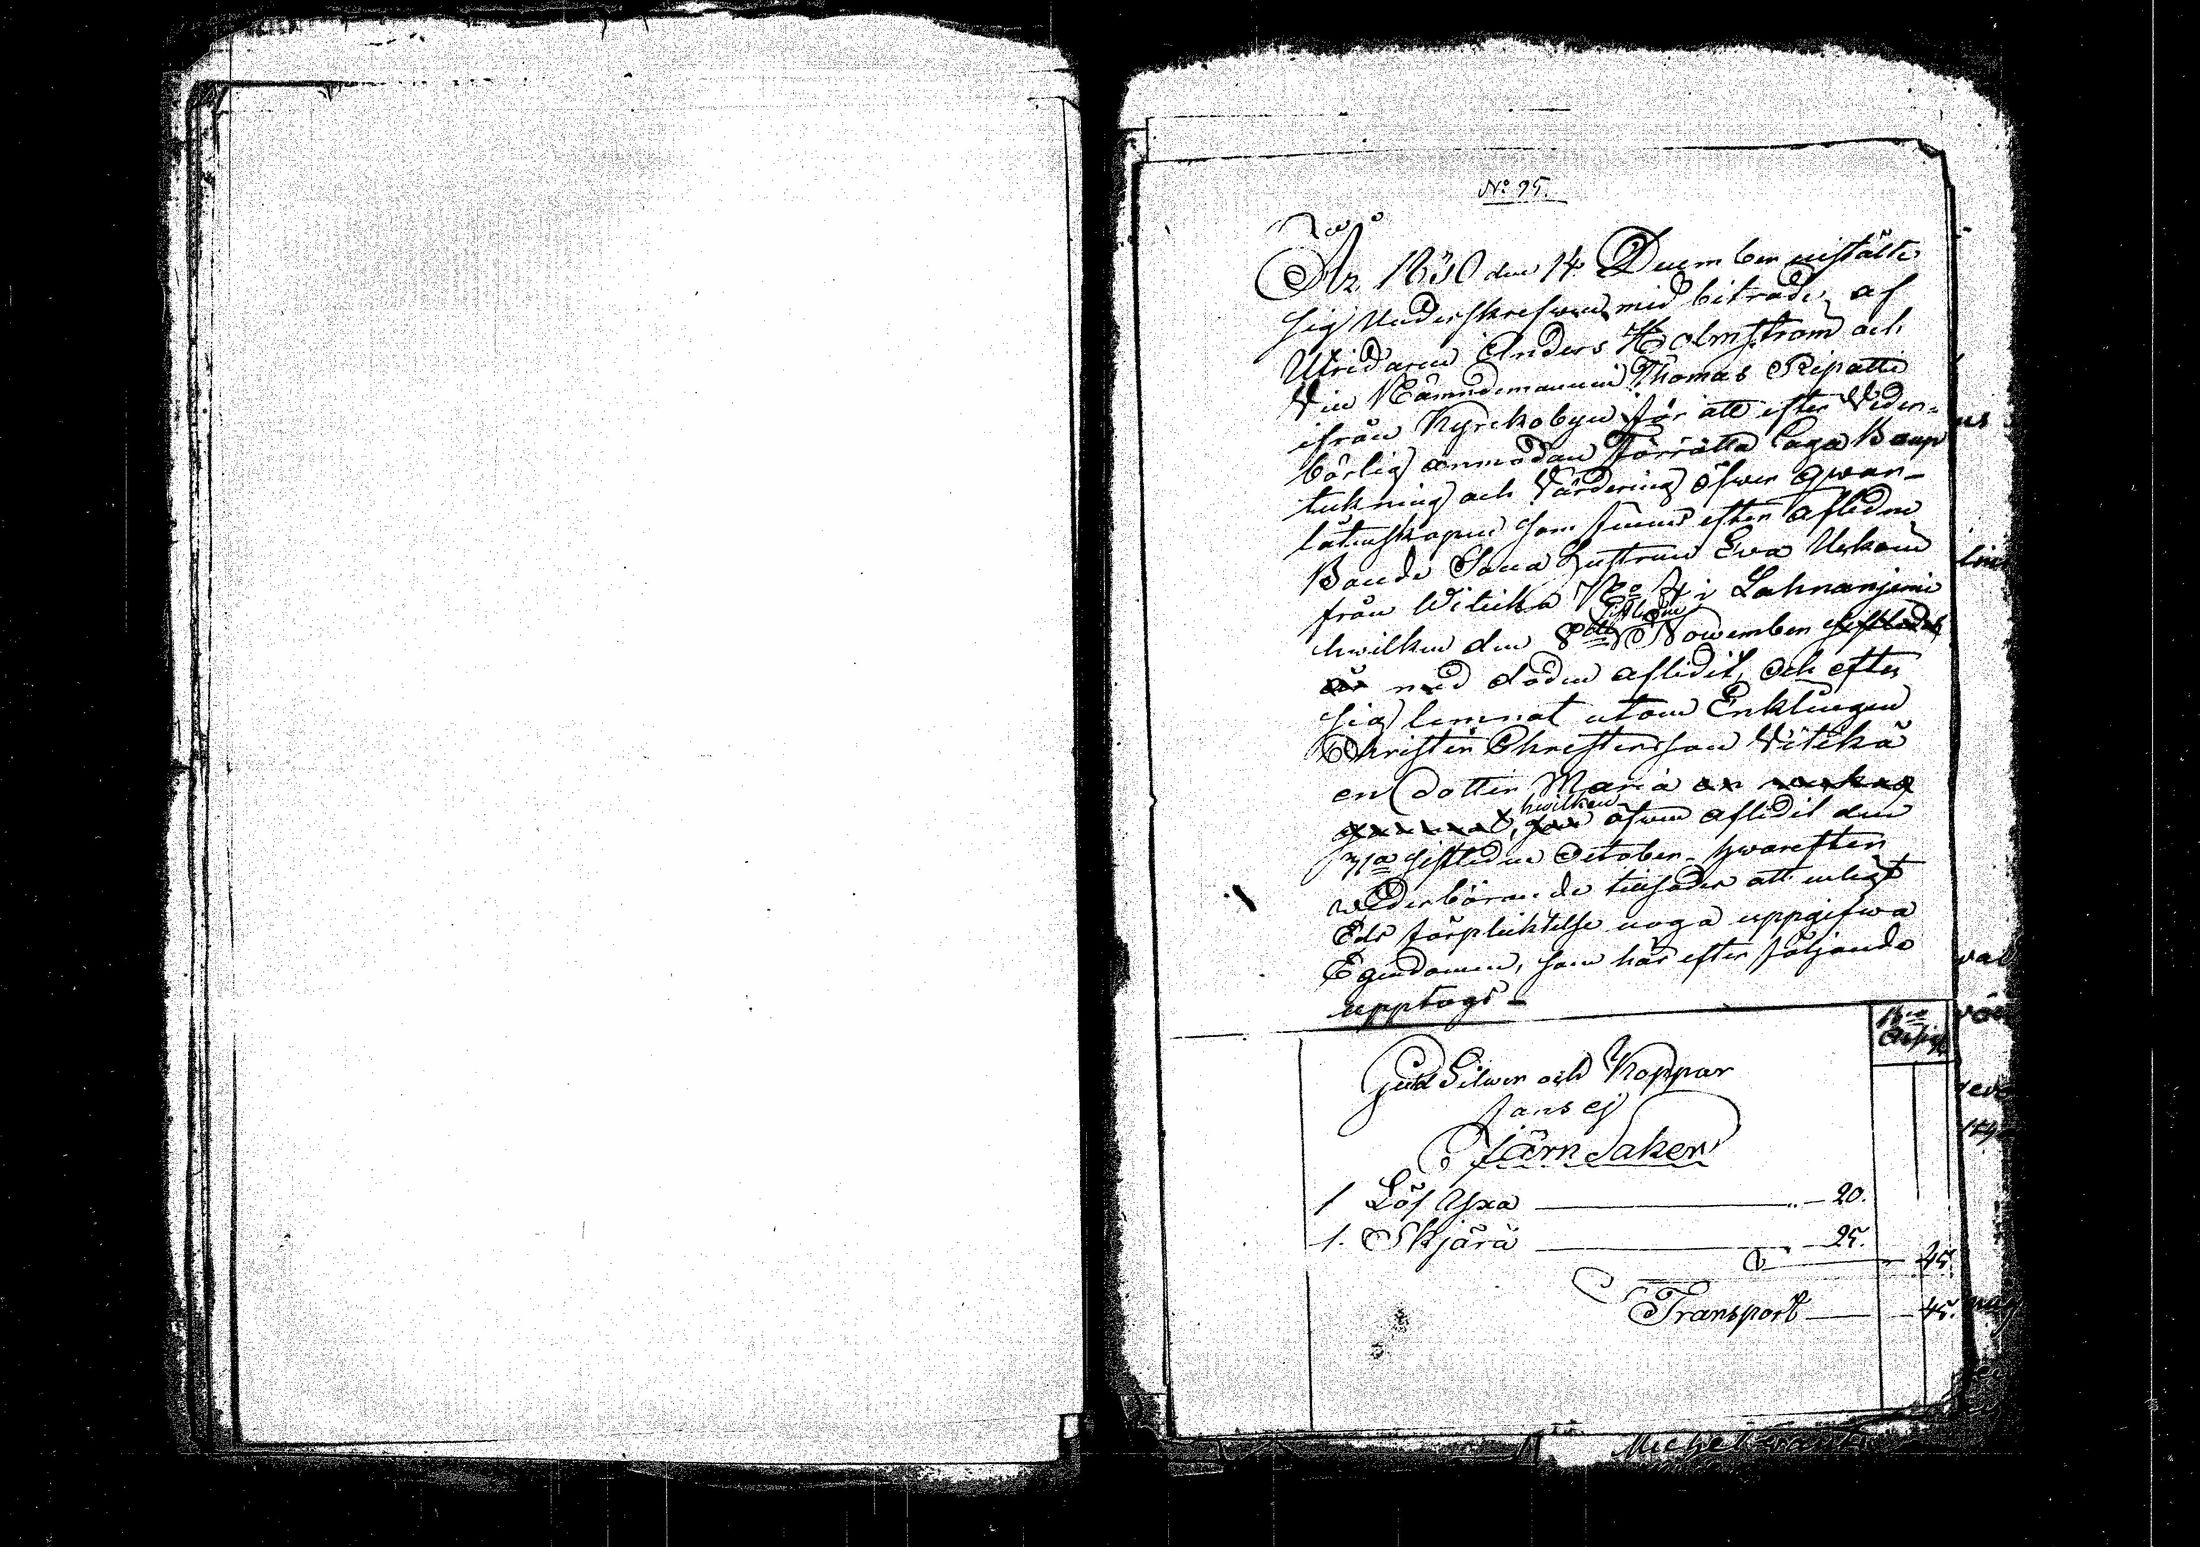 No 95.
År 1830 den 14 December instälte
sig Underskrefwen med biträde af
Utridaren Anders Holmström och
Vice Nämndemannen Thomas Ripatti
ifrån Kyrckobyn för att efter Veder-
börlig anmodan Förrätta LagaBoup
tekning och Värdering öfwer qwar-
låtenskapen som finnes efter Afledne
Bonde Sona Hustrun Ewa
från Witicka No 7 i Lahnanjemi
sistledne
hwilken den 8de November
med döden aflidit, och efter
sig lemnat utom Enklingen
Christer Christersson Vitika
en dotter Maria
hwilken
äfwen aflidit den
sistledne October. Hwarefter
wederbörande tillsades att enligt
Eds förplicktelse noga uppgifwa
Egendomen, som här efter följande
upptogs -
Guld Silwer och Koppar
fans ej
Järn Saker
1 Löf Yxa - 20.
1. Skjärä - 25.
45.
Transport - 45.